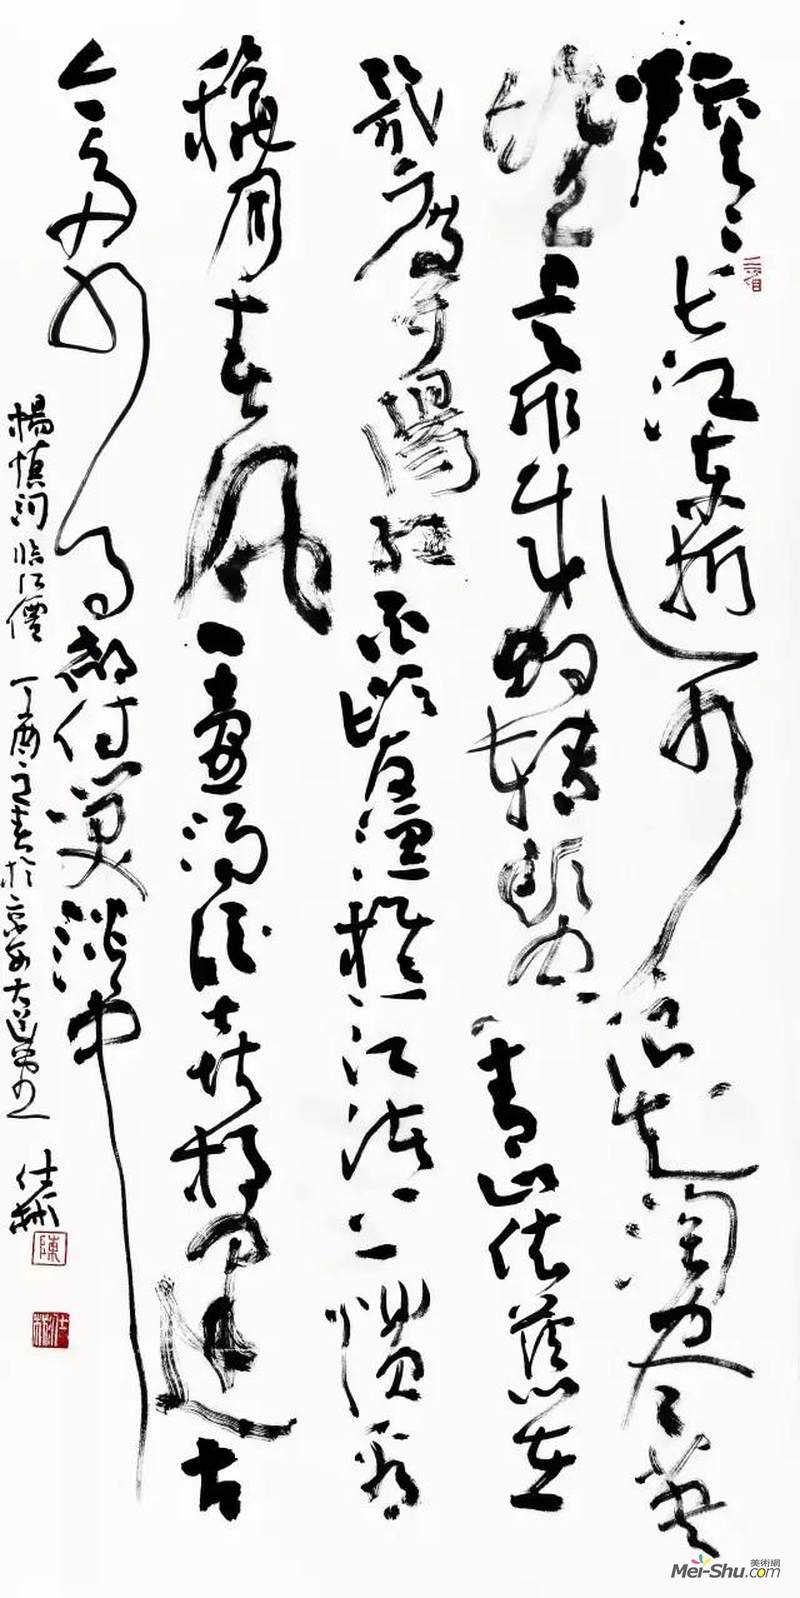 滚滚长江东逝水浪花淘尽英
雄是非成败转头空青山依旧在
几度夕陽红白髮渔樵江渚上惯看
秋月春風一壺濁酒喜相逢古
今多少事都付笑谈中
楊慎詞臨江僊 丁酉之春於京 大道堂 仕彬
陳
仕彬
美術網
Mei-Shu.com